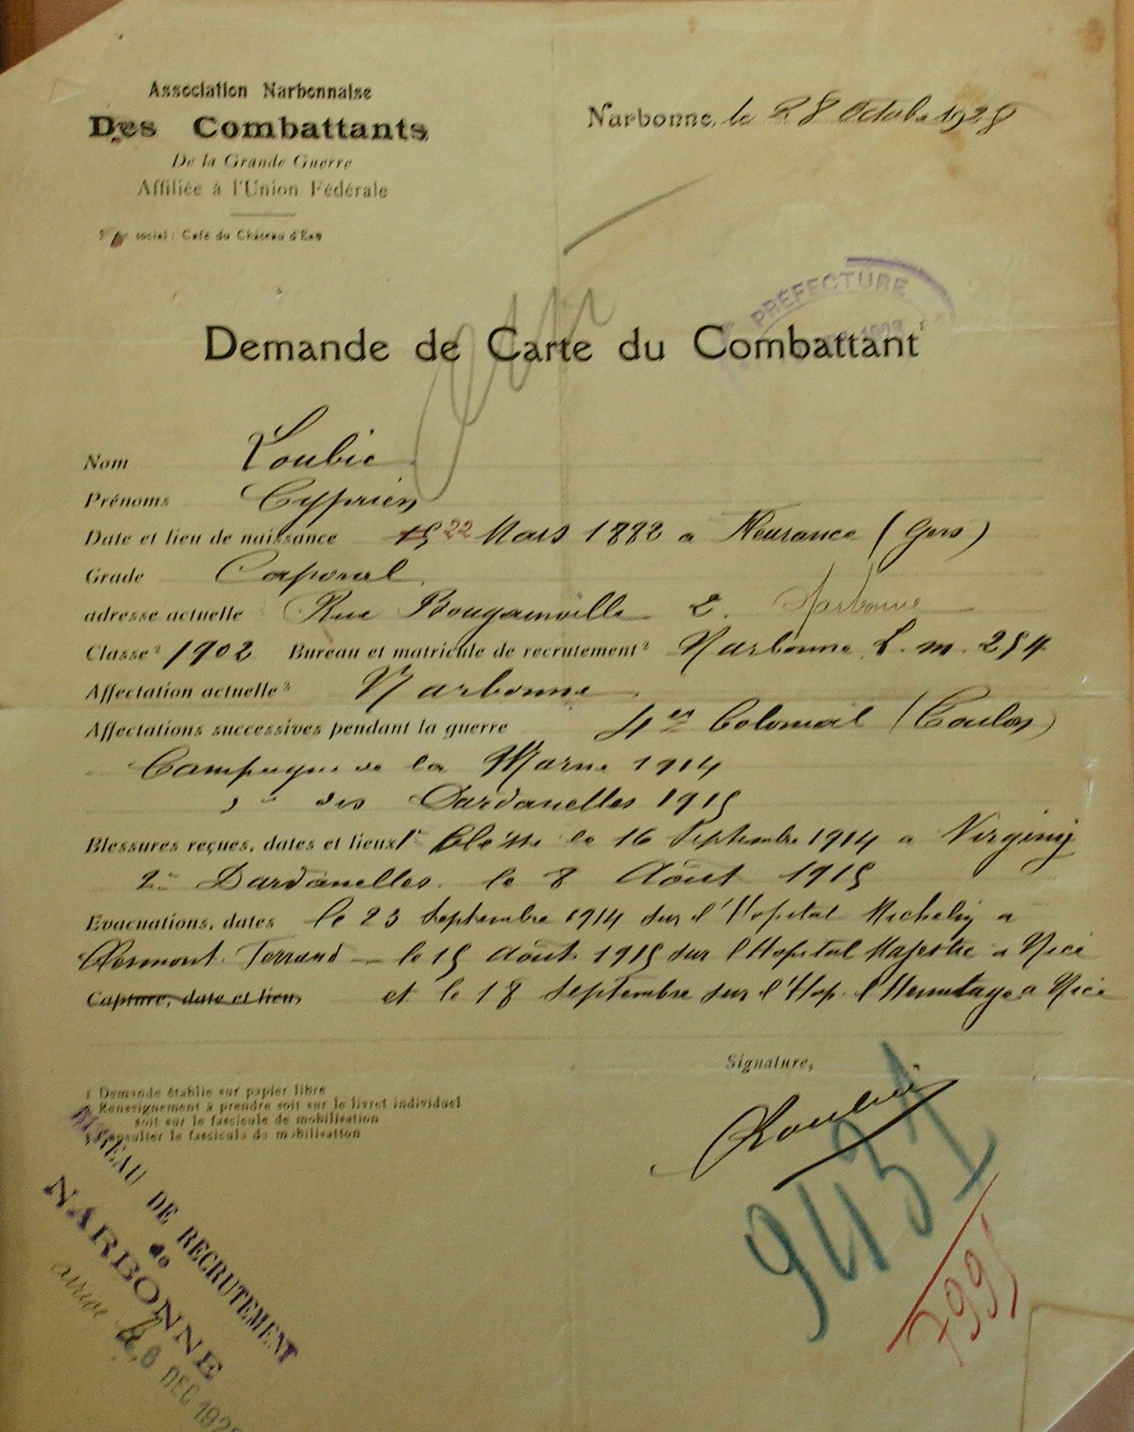 Association Narbonnaise
Des Combattants
De la Grande Guerre
Affiliée à l'Union Fédérale
social : Café du Château d'Eau
Narbonne, le 28 Octobre 1928
PRÉFECTURE
Demande de Carte du Combattant ¹
Nom Loubic
Prénoms Cyprien
Date et lieu de naissance 15 22 Mars 1882 a Fleurance (Gers)
Grade Caporal
adresse actuelle Rue Bougainville 2. Narbonne
Classe² 1902 Bureau et matricule de recrutement² Narbonne L. m. 254
Affectation actuelle³ Narbonne
Affectations successives pendant la guerre 4er Colonial (Toulon)
Campagne de la Marne 1914
" des Dardanelles 1915
Blessures reçues, dates et lieux 1° blessé le 16 Septembre 1914 a Virginy
2° Dardanelles. le 8 Août 1915
Evacuations, dates le 23 Septembre 1914 sur l'Hopital Michelin a
Clermont Ferrand — le 15 Août 1915 sur l'Hopital Majestic a Nice
Capture, date et lieu et le 18 Septembre sur l'Hop. l'Hermitage a Nice
Signature,
Loubic
1 Demande établie sur papier libre
2 Renseignement à prendre soit sur le livret individuel
soit sur le fascicule de mobilisation
3 Consulter le fascicule de mobilisation
BUREAU DE RECRUTEMENT
de
NARBONNE
DEC 192
9431
7995